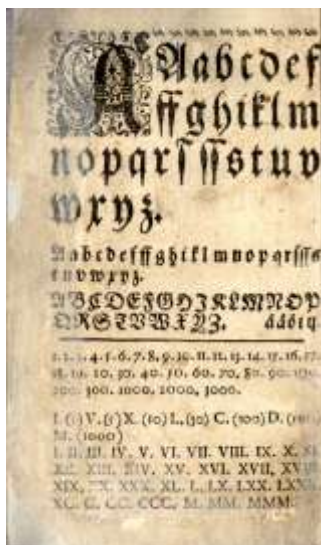 A Aabcdef
ffghiklm
nopqrſ ſſstuv
wxyz.
Aabcdefffghiklmnopqrſſſs
tuvwxyz.
ABCDEFGHJKLMNOP
QRSTVWXYZ.
1. 2. 3. 4. 5. 6. 7. 8. 9. 10. 11. 12. 13. 14. 15. 16. 17.
18. 19. 20. 30. 40. 50. 60. 70. 80. 90. 100.
200. 300. 1000. 2000, 3000.
I. (1) V. (5) X. (10) L. (50) C. (100) D. (500)
M. (1000)
I. II. III. IV. V. VI. VII. VIII. IX. X. XI.
XII. XIII. XIV. XV. XVI. XVII, XVIII
XIX, XX. XXX. XL. L. LX. LXX. LXXX.
XC. C. CC. CCC. M. MM. MMM.